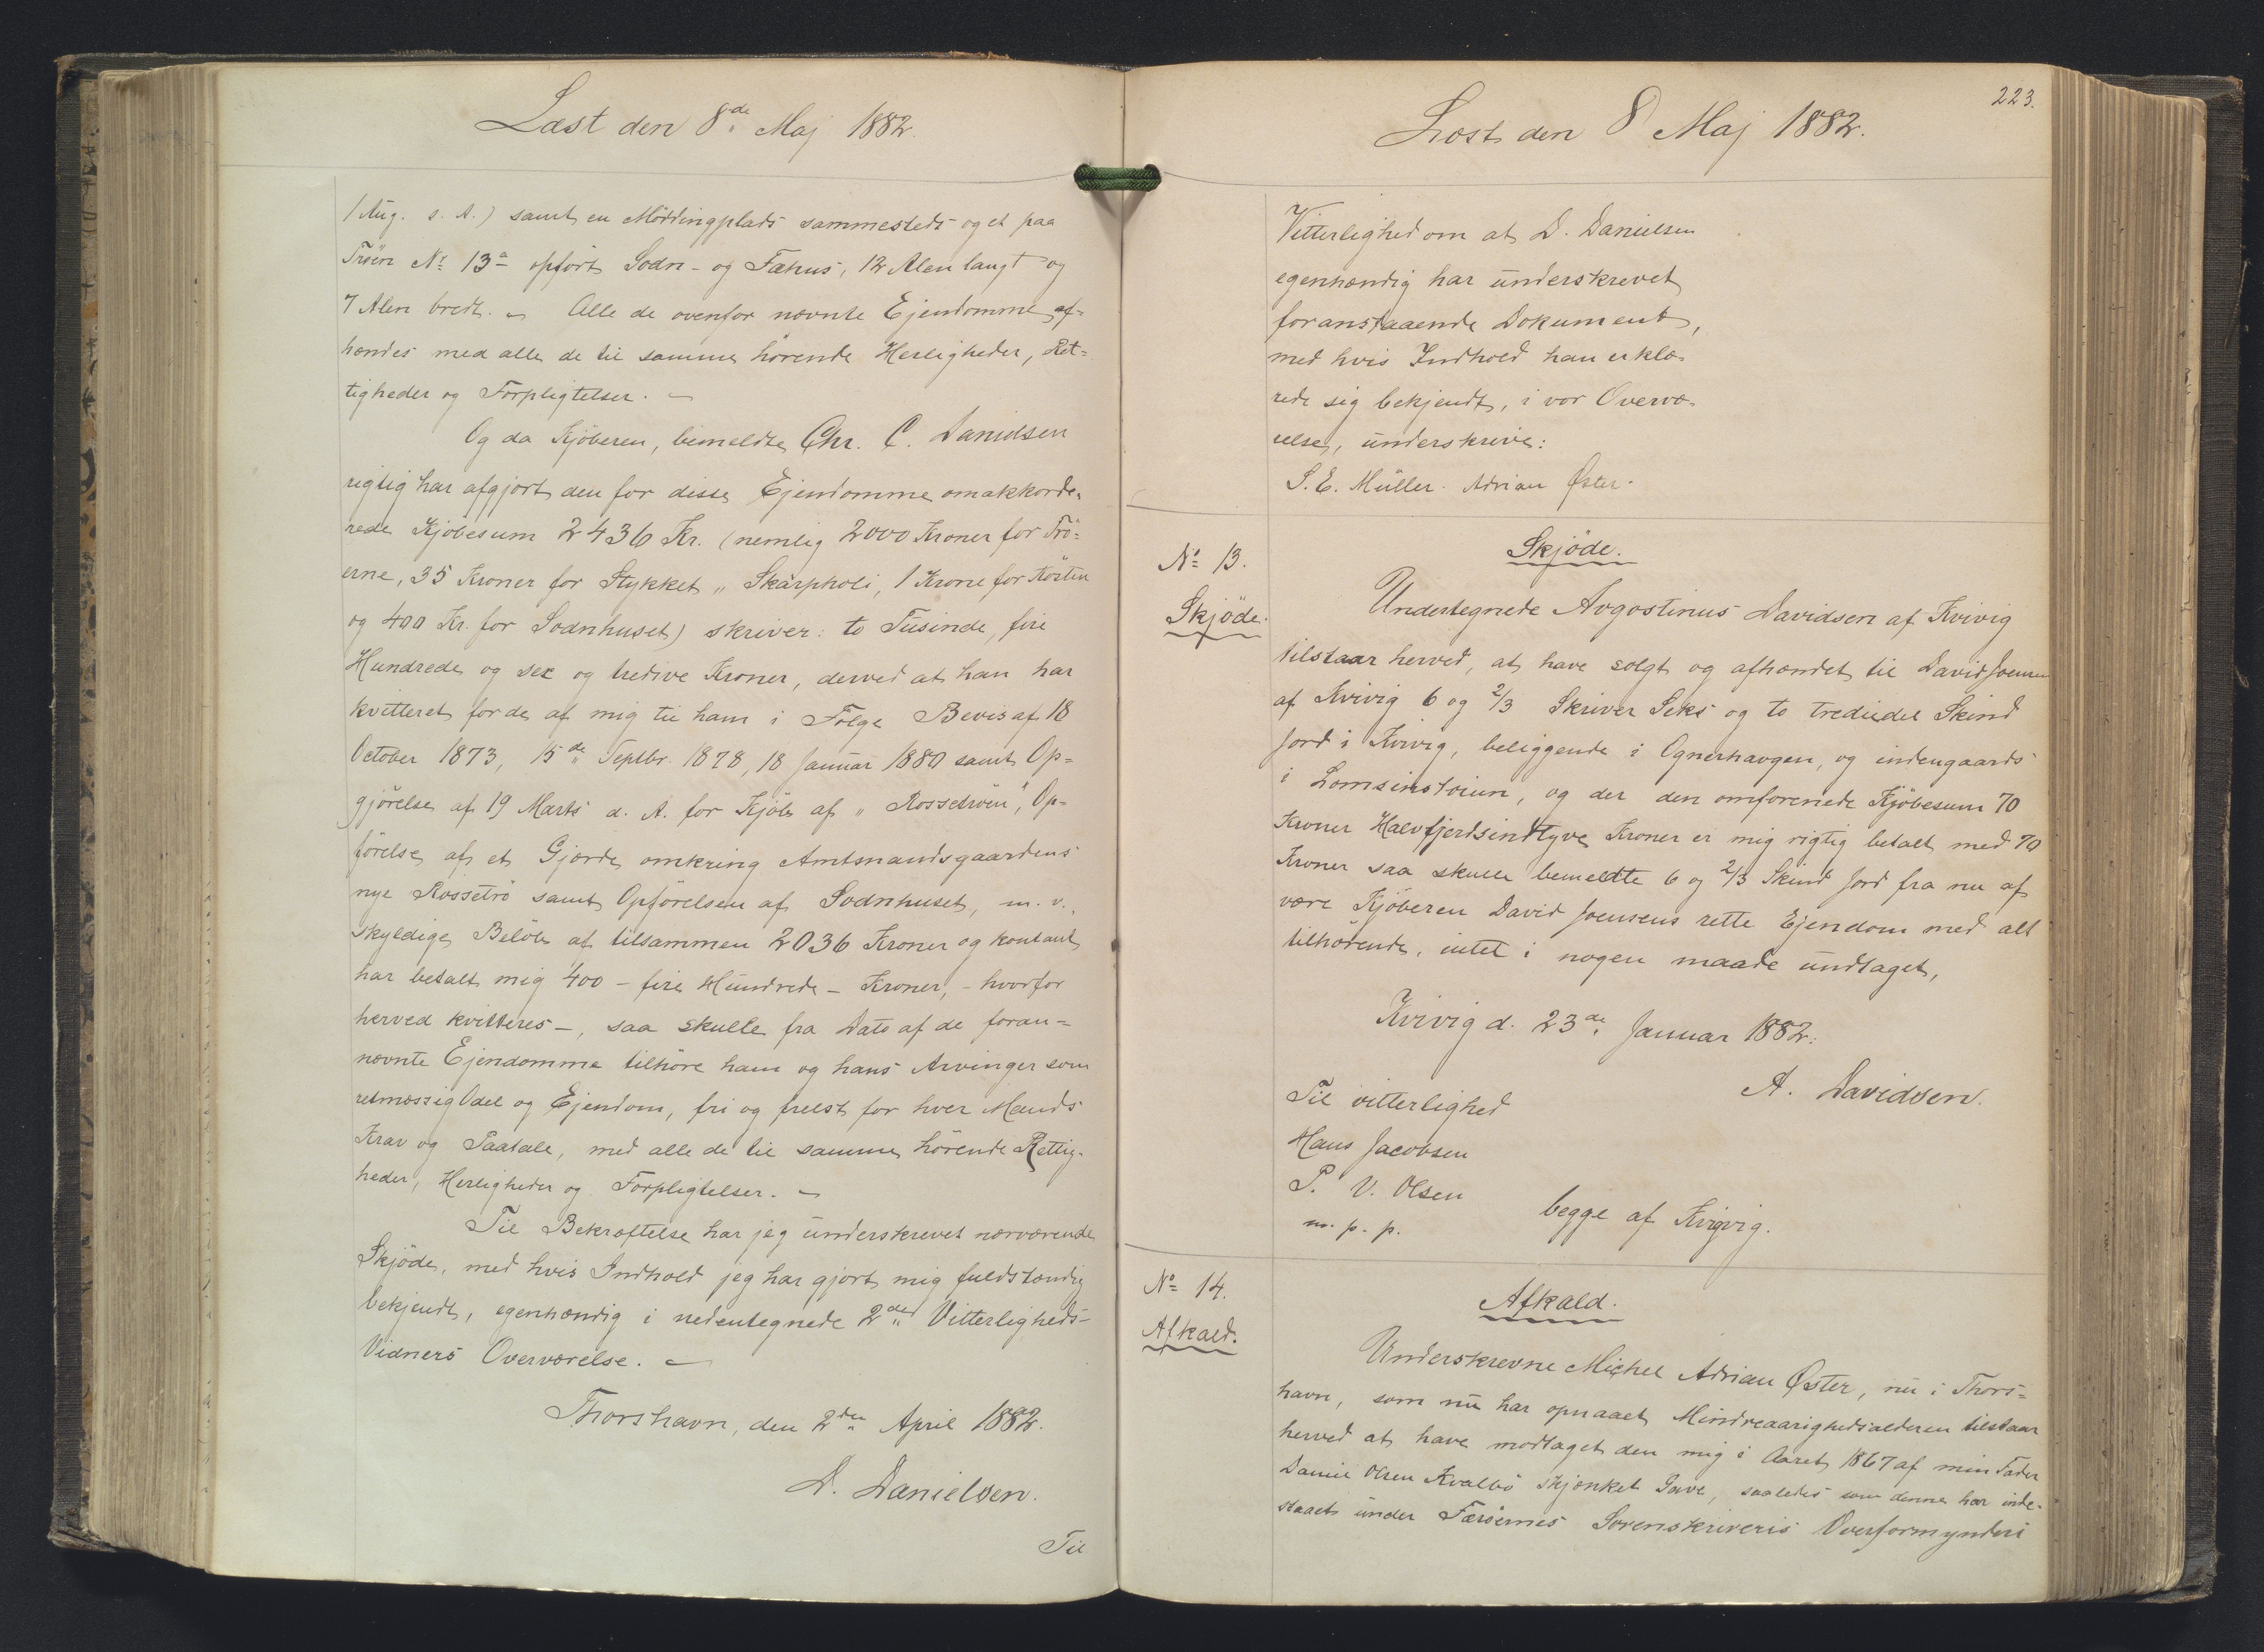 Læst den 8de Maj 1882.
1 Aug. s. A.) samt en Möddingplads sammesteds og et paa
Tröen No 13a opfört Sodn- og Fæhus, 12 Alen langt og
7 Alen bredt. - Alle de ovenfor nævnte Ejendomme af-
hændes med alle de til samme hörende Herligheder, Ret-
tigheder og Forpligtelser. -
Og da Kjöberen, bemeldte Chr. C. Danielsen
rigtig har afgjort den for disse Ejendomme omakkorde-
rede Kjöbesum 2436 Kr. (nemlig 2000 Kroner for Trö-
erne, 35 Kroner for Stykket „Skarpholi, 1 Krone for
og 400 Kr. for Sodnhuset) skriver: to Tusinde, fire
Hundrede og sex og tredive Kroner, derved at han har
kvitteret for de af mig til ham i Fölge Bevis af 18
October 1873, 15de Septbr. 1878, 18 Januar 1880 samt Op-
gjörelse af 19 Marts d. A. for Kjöb af „Rossetröen", Op-
förelse af et Gjærde omkring Amtmandsgaardens
nye Rossetrö samt Opförelsen af Sodnhuset, m. v.,
skyldige Belöb af tilsammen 2036 Kroner og kontant
har betalt mig 400 - fire Hundrede - Kroner, - hvorfor
herved kvitteres -, saa skulle fra Dato af de foran-
nævnte Ejendomme tilhöre ham og hans Arvinger som
retmæssig Odel og Ejendom, fri og frelst for hver Mands
Krav og Paatale, med alle de til samme hörende Rettig-
heder, Herligheder og Forpligtelser. -
Til Bekræftelse har jeg underskrevet nærværende
Skjöde, med hvis Indhold jeg har gjort mig fuldstændig
bekjendt, egenhændig i nedentegnede 2de Vitterligheds-
Vidners Overværelse. -
Thorshavn, den 2den April 1882.
D. Danielsen.
Til
223.
Læst den 8 Maj 1882.
Vitterlighed om at D. Danielsen
egenhændig har underskrevet
foranstaaende Dokument,
med hvis Indhold han erklæ-
rede sig bekjendt, i vor Overvæ-
relse, underskrive:
S. E. Müller. Adrian Øster.
No 13.
Skjöde.
Skjöde.
Undertegnede Avgostinus Davidsen af Kvivig
tilstaar herved, at have solgt og afhændet til David Joensen
af Kvivig 6 og 2/3 Skriver Seks og to trediedel Skind
Jord i Kvivig, beliggende i Ognerhavgen, og indengaards
i og der den omforenede Kjöbesum 70
Kroner Halvfjerdsindtyve Kroner er mig rigtig betalt med 70
Kroner saa skulle bemeldte 6 og 2/3 Skind Jord fra nu af
være Kjöberen David Joensens rette Ejendom med alt
tilhörende, intet i nogen maade undtaget,
Kvivig d. 23de Januar 1882.
A. Davidsen.
Til vitterlighed
Hans Jacobsen
P. V. Olsen
m. p. p.
begge af Kvigvig.
No 14.
Afkald.
Afkald.
Underskrevne Michel Adrian Øster, nu i Thors-
havn, som nu har opnaaet Mindreaarighedsalderen tilstaar
herved at have modtaget den mig i Aaret 1867 af min Fader
Daniel Olsen Kvalbö skjænket Gave, saaledes som denne har inde-
staaet under Færöernes Sorenskriveris Overformynderi